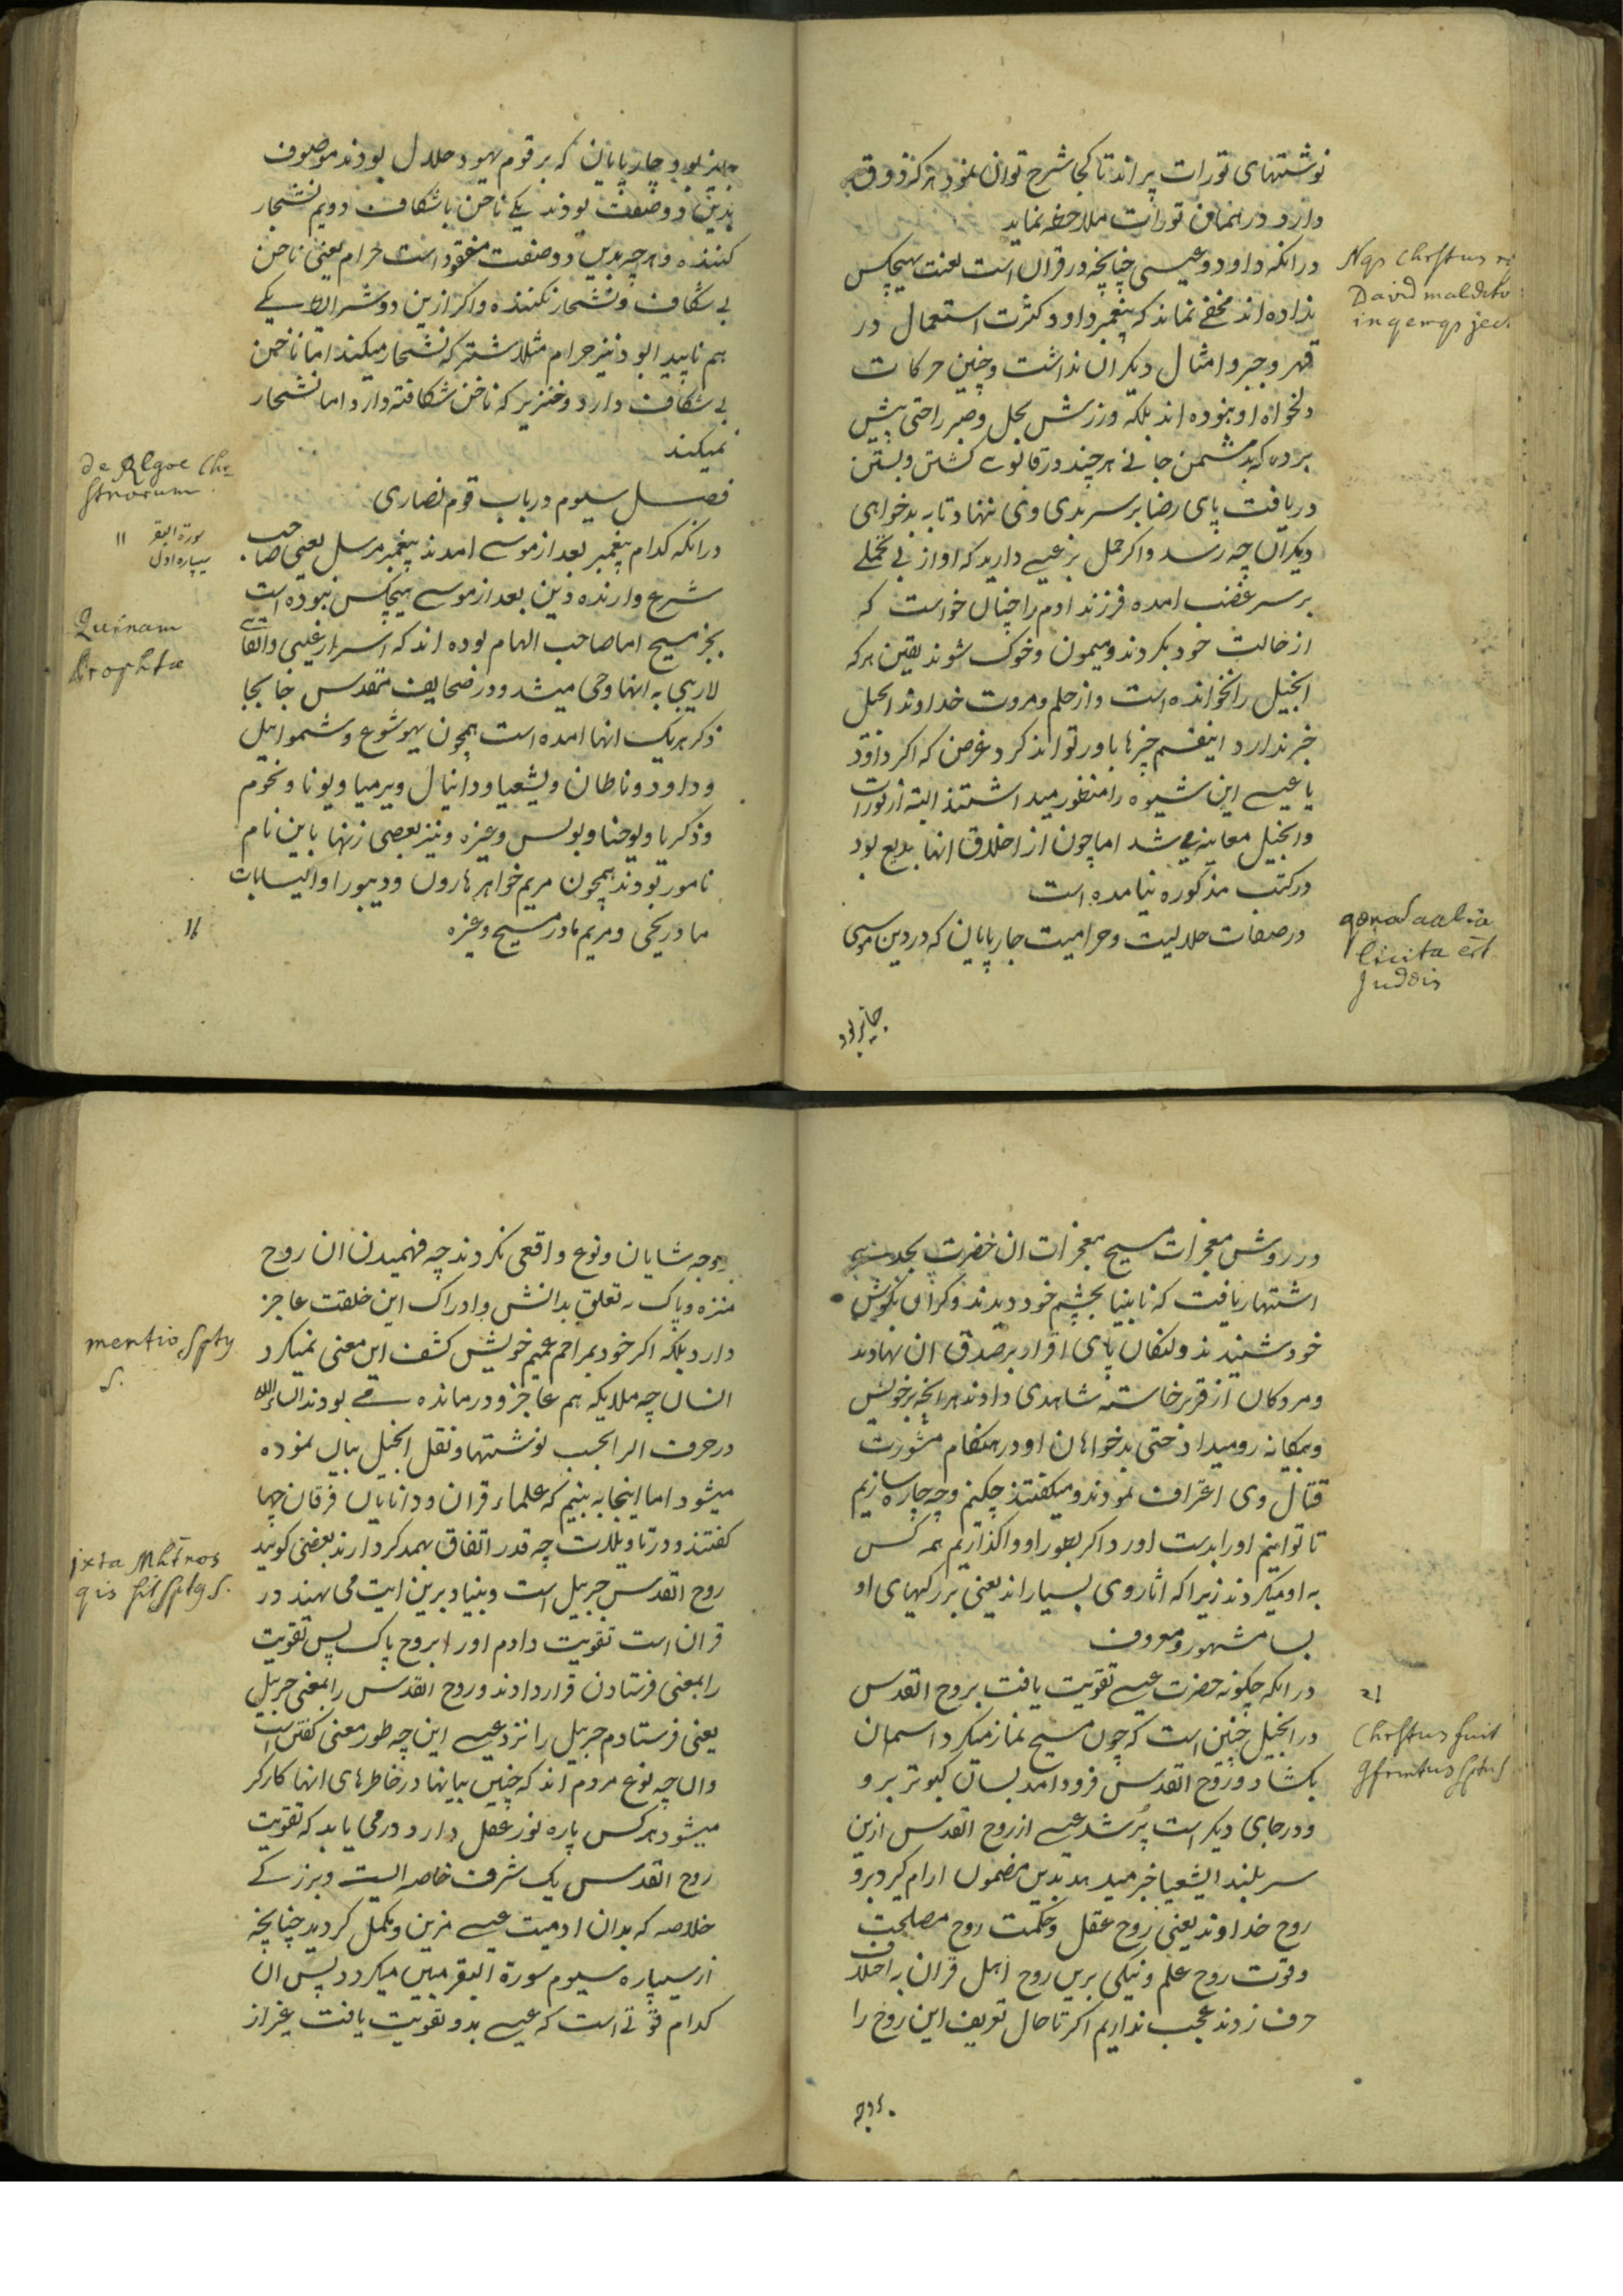 نوشتهای تورات پر اند تا کجا شرح توان نمود هر که ذوق
دارد در همان تورات ملاحظه نماید
در انکه داود و عیسی چنانچه در قران است لعنت بهیچکس
نداده اند مخفی نماند که پیغمبر داود کثرت استعمال در
قهر و جبر و امثال دیکر ان نداشت و چنین حرکات
دلخواه او نبوده اند بلکه ورزش بحلم و صبر را حتی پیش
برده که بدشمن جانی هر چند در قابوی کشتن و بستن
دریافت پای رضا بر سر بدی وی ننهاد تا به بدخواهی
دیکران چه رسد و اکر حمل بر عیسی دارید که او از بی تحملی
بر سر غضب امده فرزند ادم را چنان خواست که
از حالت خود بکردند و میمون و خوک شوند یقین هر که
انجیل را نخوانده است و از حلم و مروت خداوند انجیل
خبر ندارد اینقسم چیزها باور تواند کرد غرض که اکر داود
یا عیسی این شیوه را منظور میداشتند البته از تورات
و انجیل معاینه می شد اما چون از اخلاق انها بدیع بود
در کتب مذکوره نیامده است
در صفات حلالیت و حرامیت چارپایان که در دین موسی
جایز بود
Nqs Chrstus
David maldito
in qemqs
licita est
Judeis
جایز بود چارپایان که بر قوم یهود حلال بودند موصوف
بدین دو صفت بودند یکی ناخن با شکاف دویم نشخار
کننده و هر چه بدین دو صفت مفقود است حرام یعنی ناخن
بی شکاف و نشخار نکننده و اکر ازین دو شرایط یکی
هم ناپیدا بود نیز حرام مثلا شتر که نشخار میکند اما ناخن
بی شکاف دارد و خنزیر که ناخن شکافته دارد اما نشخار
نمیکند
فصل سیوم در باب قوم نصاری
در انکه کدام پیغمبر بعد از موسی امدند پیغمبر مرسل یعنی صاحب
شرع و ارنده دین بعد از موسی هیچکس نبوده است
بجز مسیح اما صاحب الهام بوده اند که اسرار غیبی و القای
لاریبی به انها وحی میشد و در صحایف مقدس جا بجا
ذکر هر یک انها امده است همچون یهوشوع و شموایل
و داود و ناطان و یشعیا و دانیال و یرمیا و یونا و نحوم
و ذکریا و یوحنا و بولس و غیره و نیز بعضی زنها باین نام
نامور بودند همچون مریم خواهر هارون و دیبورا و الیسابات
مادر یحیی و مریم مادر مسیح و غیره
سورة البقر
سیپاره اول
۱۱
Quinam
Prophtae
در روش معجزات مسیح معجزات ان حضرت بحدی
اشتهار یافت که نابینا بچشم خود دیدند و کران بکوش
خود شنیدند و لنکان پای اقرار بر صدق ان نهادند
و مردکان از قبر برخاسته شاهدی دادند هر انچه بر خویش
و بیکانه رو میداد حتی بدخواهان او در هنکام مشورت
قتال وی اعتراف نمودند و میکفتند چکنیم و چه چاره سازیم
تا توانیم او را بدست اورد اکر بطور او واکذاریم همه کس
به او میکروند زیرا که اثار وی بسیار اند یعنی بزرکیهای او
بسا مشهور و معروف
در انکه چکونه حضرت عیسی تقویت یافت بروح القدس
در انجیل چنین است که چون مسیح نماز میکرد اسمان
بکشاد و روح القدس فرود امد بسان کبوتر برو
و در جای دیکر است پر شد عیسی از روح القدس ازین
سر بلند ایشعیا خبر میدهد بدین مضمون ارام کیرد برو
روح خداوند یعنی روح عقل و حکمت روح مصلحت
و قوت روح علم و نیکی برین روح اهل قران به اختلاف
حرف زدند عجب نداریم اکر تا حال تعریف این روح را
بوجه
Chrstus fuit
بوجه شایان و نوع واقعی نکردند چه فهمیدن ان روح
منزه و پاک نه تعلق بدانش و ادراک این خلقت عاجز
دارد بلکه اکر خود بمراحم عمیم خویش کشف این معنی نمیکرد
انسان چه ملایکه هم عاجز و درمانده می بودند انشاءالله
در حرف الر بحسب نوشتها و نقل انجیل بیان نموده
میشود اما اینجا به بینیم که علماء قران و دانایان فرقان چها
کفتند و در تاویلات چه قدر اتفاق بهمدکر دارند بعضی کویند
روح القدس جبریل است و بنیاد برین ایت می نهند در
قران است تقویت دادم او را بروح پاک پس تقویت
را بمعنی فرستادن قرار دادند و روح القدس را بمعنی جبریل
یعنی فرستادم جبریل را نزد عیسی این چه طور معنی کفتن است
و ان چه نوع مردم اند که چنین بیانها در خاطرهای انها کارکر
میشود هر کس پاره نور عقل دارد در می یابد که تقویت
روح القدس یک شرف خاصه الیست و بزرکی
خلاصه که بدان ادمیت عیسی مزین و مکمل کردید چنانچه
از سیپاره سیوم سورة البقر مبین میکردد پس ان
کدام قوتی است که عیسی بدو تقویت یافت غیر از
mentio Spty
S.